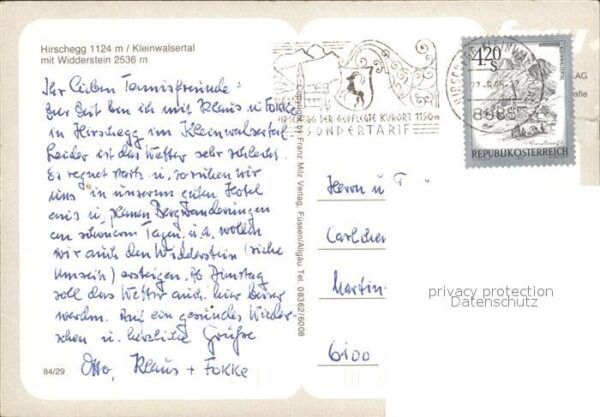 Hirschegg 1124 m / Kleinwalsertal
mit Widderstein 2536 m
Ihr lieben Tennisfreunde:
Zur Zeit bin ich mit Klaus u. Fokke
in Hirschegg im Kleinwalsertal.
Leider ist das Wetter sehr schlecht.
Es regnet stark u. so ruhen wir
uns in unserem guten Hotel
aus u. planen Bergwanderungen
an schönern Tagen, u.a. wollen
wir auch den Widderstein (siehe
Umseit) ersteigen. Ab Dienstag
soll das Wetter auch hier besser
werden. Auf ein gesundes Wieder-
sehen u. herzliche Grüße
Otto, Klaus + Fokke
84/29
Copyright by Franz Milz Verlag, Füssen/Allgäu Tel. 08362/6008
HIRSCHEGG DER GEPFLEGTE KURORT 1150m
SONDERTARIF
4.20
S
REPUBLIK ÖSTERREICH
AG
afie
Herrn u
Martin
6100
privacy protection
Datenschutz